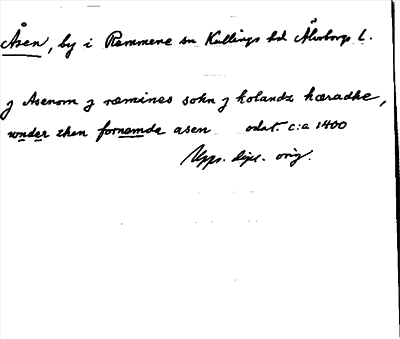 Åsen, by i Remmene sn Kullings hd Älvsborgs l.
J Asenom J ræmines sokn J kolandz hæradhe,
wnder then fornemda asen odat. c:a 1400
Upps. dipl. orig.